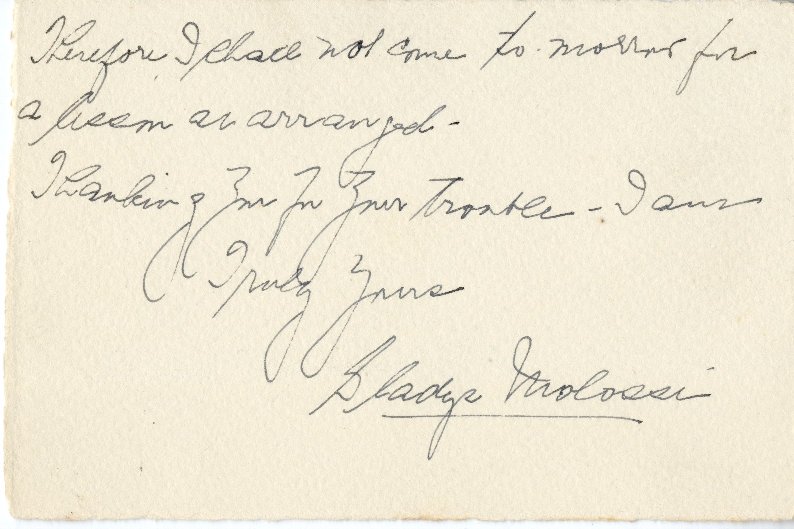 Therefore I shall not come to-morrow for
a lesson as arranged -
Thanking you for your trouble - I am
Truly Yours
Gladys Molossi